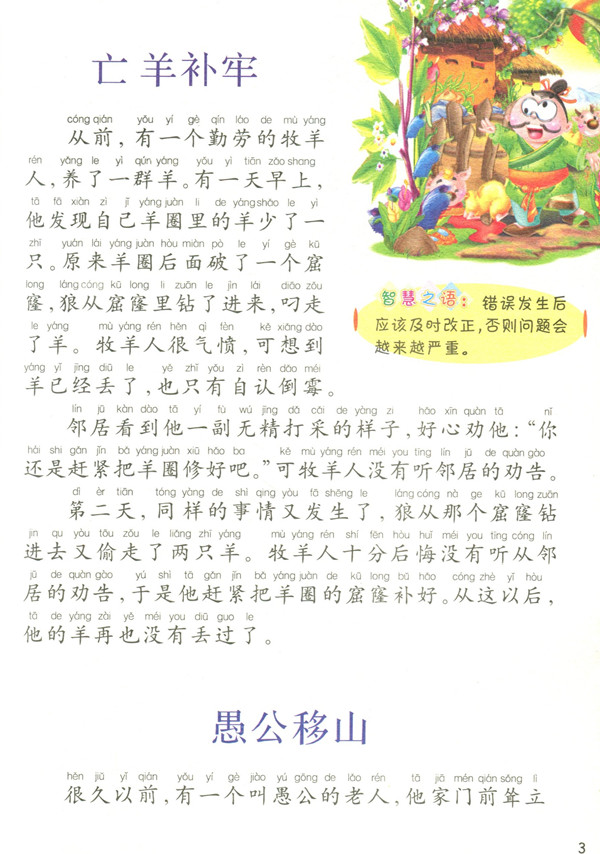 亡羊补牢
cóng qián yǒu yí gè qín láo de mù yáng
从前,有一个勤劳的牧羊
rén yǎng le yì qún yáng yǒu yì tiān zǎo shang
人,养了一群羊。有一天早上,
tā fā xiàn zì jǐ yáng juàn li de yáng shǎo le yì
他发现自己羊圈里的羊少了一
zhī yuán lái yáng juàn hòu miàn pò le yí gè kū
只。原来羊圈后面破了一个窟
long láng cóng kū long li zuān le jìn lái diāo zǒu
窿,狼从窟窿里钻了进来,叼走
le yáng mù yáng rén hěn qì fèn kě xiǎng dào
了羊。牧羊人很气愤,可想到
yáng yǐ jīng diū le yě zhǐ yǒu zì rèn dǎo méi
羊已经丢了,也只有自认倒霉。
智慧之语:错误发生后
应该及时改正,否则问题会
越来越严重。
lín jū kàn dào tā yí fù wú jīng dǎ cǎi de yàng zi hǎo xīn quàn tā nǐ
邻居看到他一副无精打采的样子,好心劝他:“你
hái shi gǎn jǐn bǎ yáng juàn xiū hǎo ba kě mù yáng rén méi you tīng lín jū de quàn gào
还是赶紧把羊圈修好吧。”可牧羊人没有听邻居的劝告。
dì èr tiān tóng yàng de shì qing yòu fā shēng le láng cóng nà ge kū long zuān
第二天,同样的事情又发生了,狼从那个窟窿钻
jìn qu yòu tōu zǒu le liǎng zhī yáng mù yáng rén shí fēn hòu huǐ méi you tīng cóng lín
进去又偷走了两只羊。牧羊人十分后悔没有听从邻
jū de quàn gào yú shì tā gǎn jǐn bǎ yáng juàn de kū long bǔ hǎo cóng zhè yǐ hòu
居的劝告,于是他赶紧把羊圈的窟窿补好。从这以后,
tā de yáng zài yě méi you diū guo le
他的羊再也没有丢过了。
愚公移山
hěn jiǔ yǐ qián yǒu yí gè jiào yú gōng de lǎo rén tā jiā mén qián sǒng lì
很久以前,有一个叫愚公的老人,他家门前耸立
3